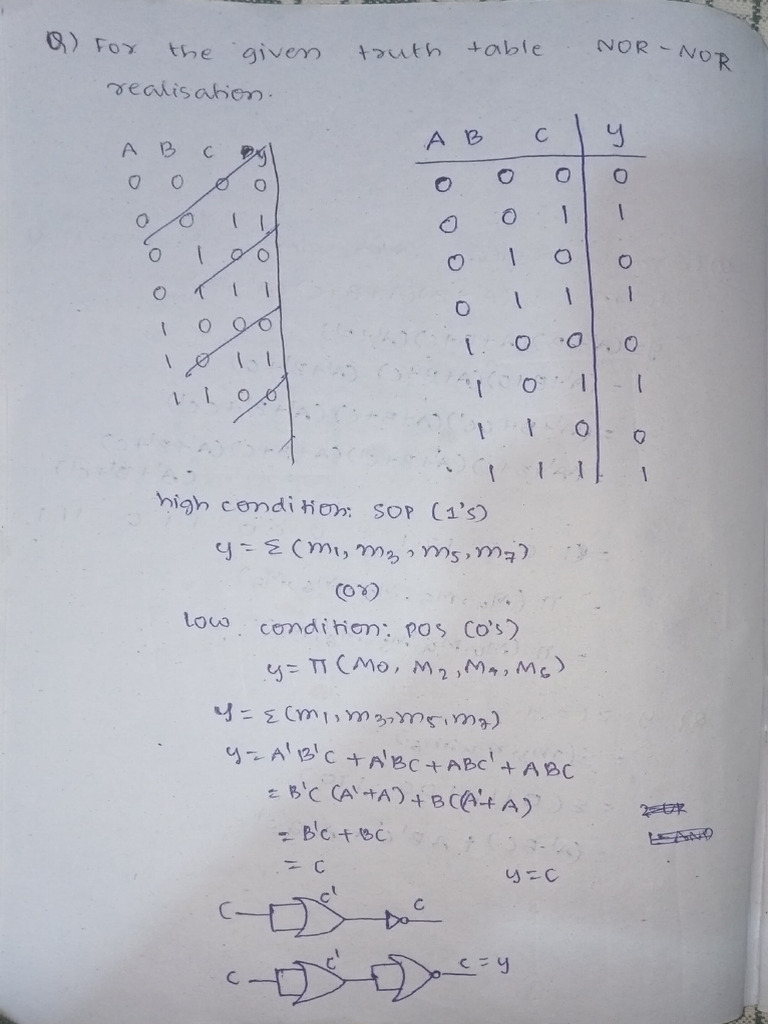 Q) For the given truth table NOR - NOR
realisation.
A B C y
0 0 0 0
0 0 1 1
0 1 0 0
0 1 1 1
1 0 0 0
1 0 1 1
1 1 0 0
A B C y
0 0 0 0
0 0 1 1
0 1 0 0
0 1 1 1
1 0 0 0
1 0 1 1
1 1 0 0
1 1 1 1
high condition: SOP (1's)
y = Σ (m1, m3, m5, m7)
(or)
low condition: POS (0's)
y = Π (M0, M2, M4, M6)
y = Σ (m1, m3, m5, m7)
y = A'B'C + A'BC + ABC' + ABC
= B'C (A'+A) + BC(A'+A)
= B'C + BC
= C y = C
C C' C
C C' C = y